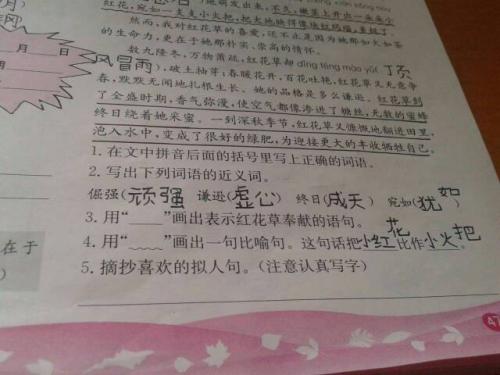 红花,宛如一支支小火把,把大地映得像块红玛瑙,美极了。
然而,我对红花草的喜爱,还不止是因为她那如火如荼
的生命力,更在于她那朴实、崇高的情怀。
数九隆冬,万物萧疏,红花草却dǐng fēng mào yǔ(顶
风冒雨),破土抽芽,春暖花开,百花吐艳,红花草又无意争
春,默默无闻地扎根生长。她的品格是多么谦逊。红花草到
了全盛时期,香气弥漫,使空气都像渗进了糖丝,无数的蜜蜂
终日绕着她采蜜。一到深秋季节,红花草又慷慨地翻进田里,
泡入水中,变成了很好的绿肥,为迎接更大的丰收牺牲自己。
1. 在文中拼音后面的括号里写上正确的词语。
2. 写出下列词语的近义词。
倔强(顽强 谦逊(虚心) 终日(成天) 宛如(犹如)
3. 用“——”画出表示红花草奉献的语句。
4. 用“﹏﹏”画出一句比喻句。这句话把小红花比作小火把
5. 摘抄喜欢的拟人句。(注意认真写字)
月)
月 日
日
在于